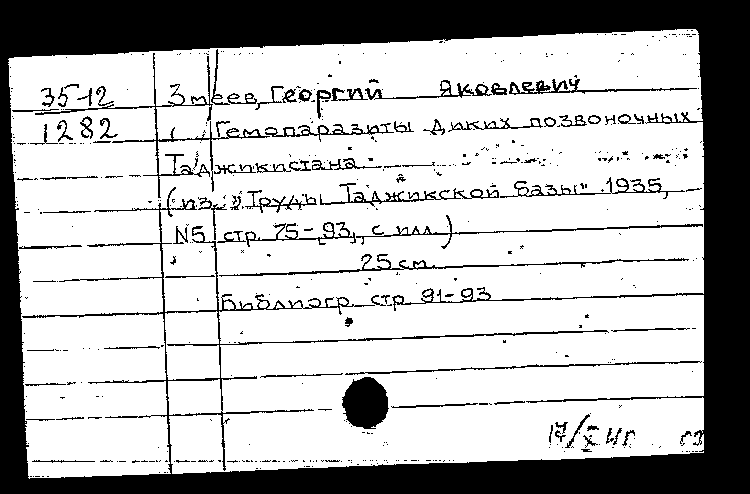 35-12
1282
Змеев, Георгий Яковлевич
Гемопаразиты диких позвоночных
Таджикистана
(из "Труды Таджикской базы" 1935,
N5 стр. 75-93, с илл.)
25 см.
Библиогр. стр 91-93
17/X